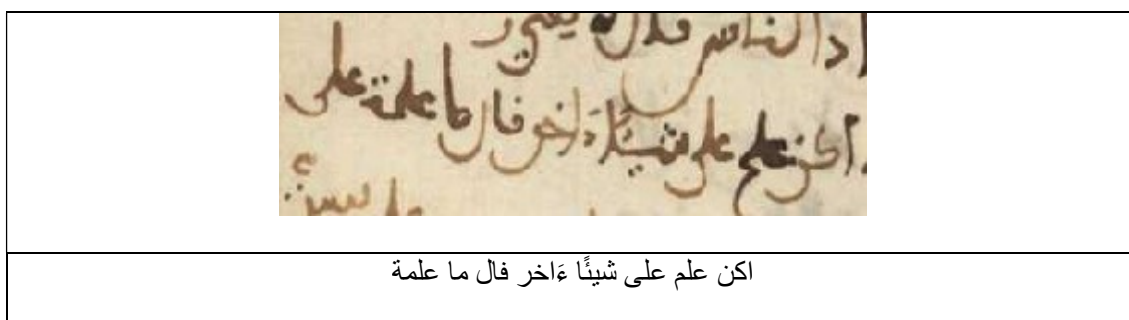 الناس
اكن علم على شيئًا ءَاخر فال ما علمة على
اكن علم على شيئًا ءَاخر فال ما علمة